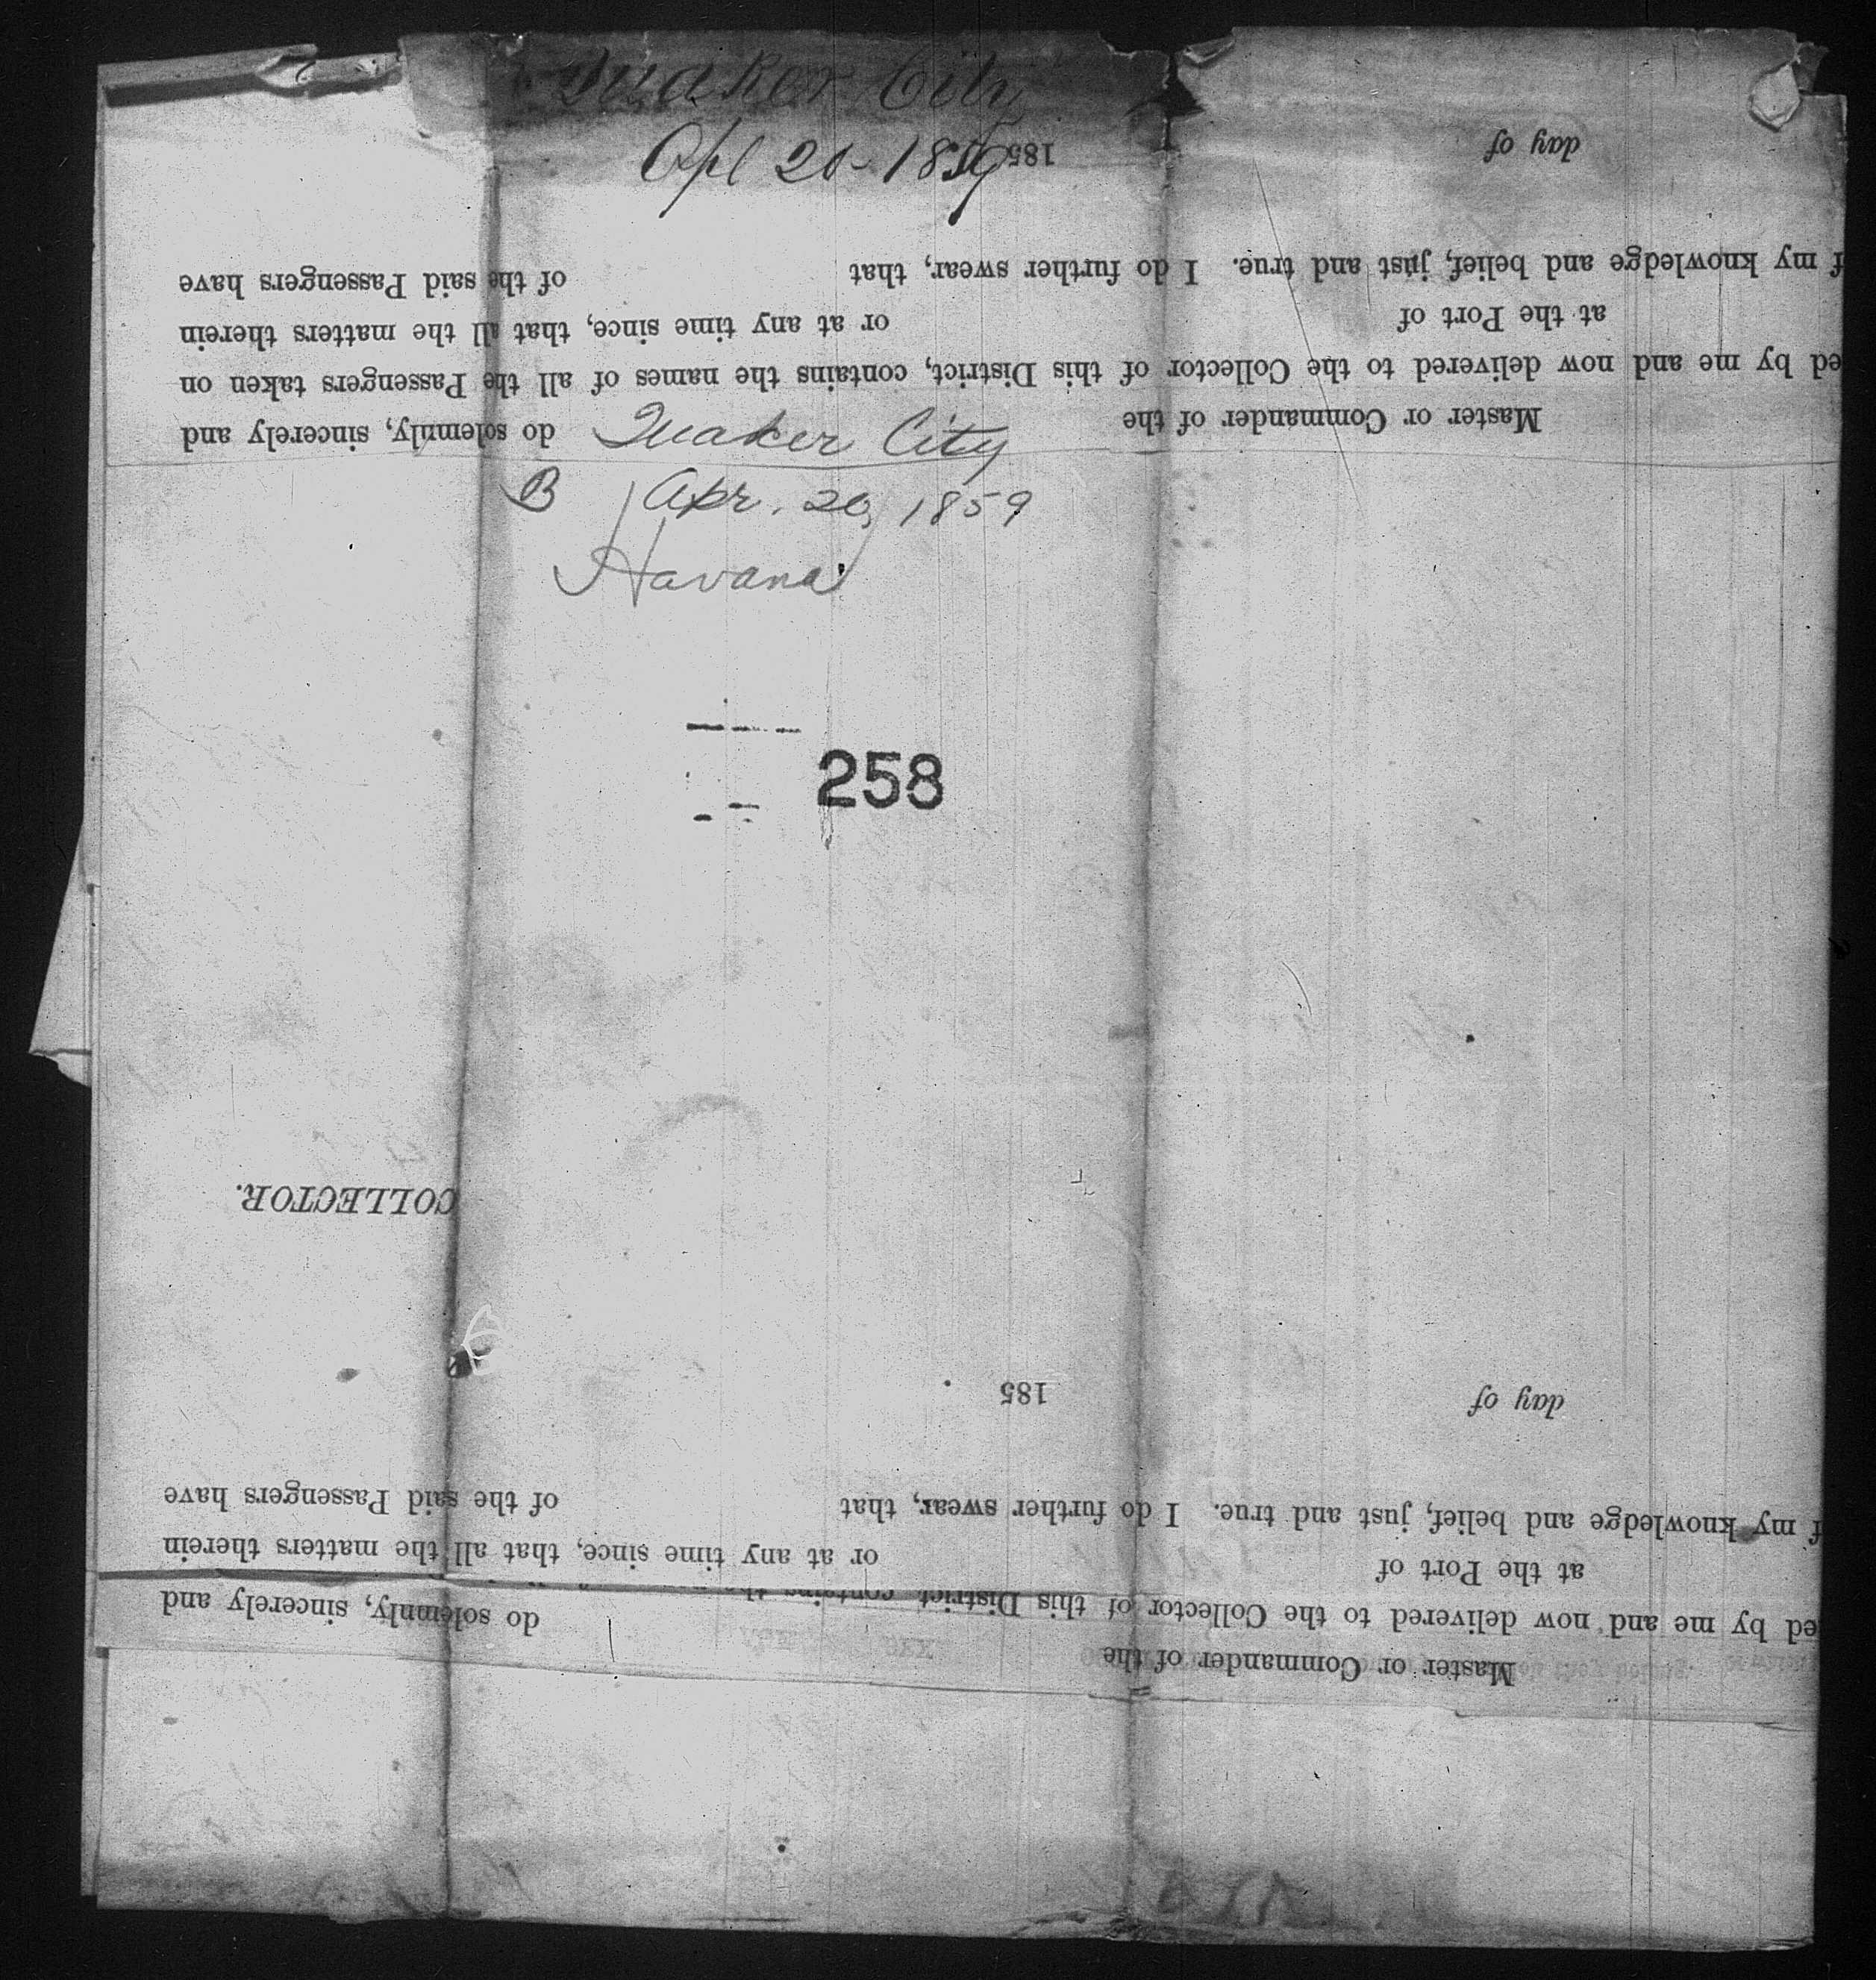 Quaker City
Apl 20 - 1859
day of 185
f my knowledge and belief, just and true. I do further swear, that of the said Passengers have
at the Port of or at any time since, that all the matters therein
ed by me and now delivered to the Collector of this District, contains the names of all the Passengers taken on
Master or Commander of the do solemnly, sincerely and
Quaker City
B Apr. 20, 1859
Havana
258
COLLECTOR.
day of 185
f my knowledge and belief, just and true. I do further swear, that of the said Passengers have
at the Port of or at any time since, that all the matters therein
ed by me and now delivered to the Collector of this District, contains the
Master or Commander of the do solemnly, sincerely and